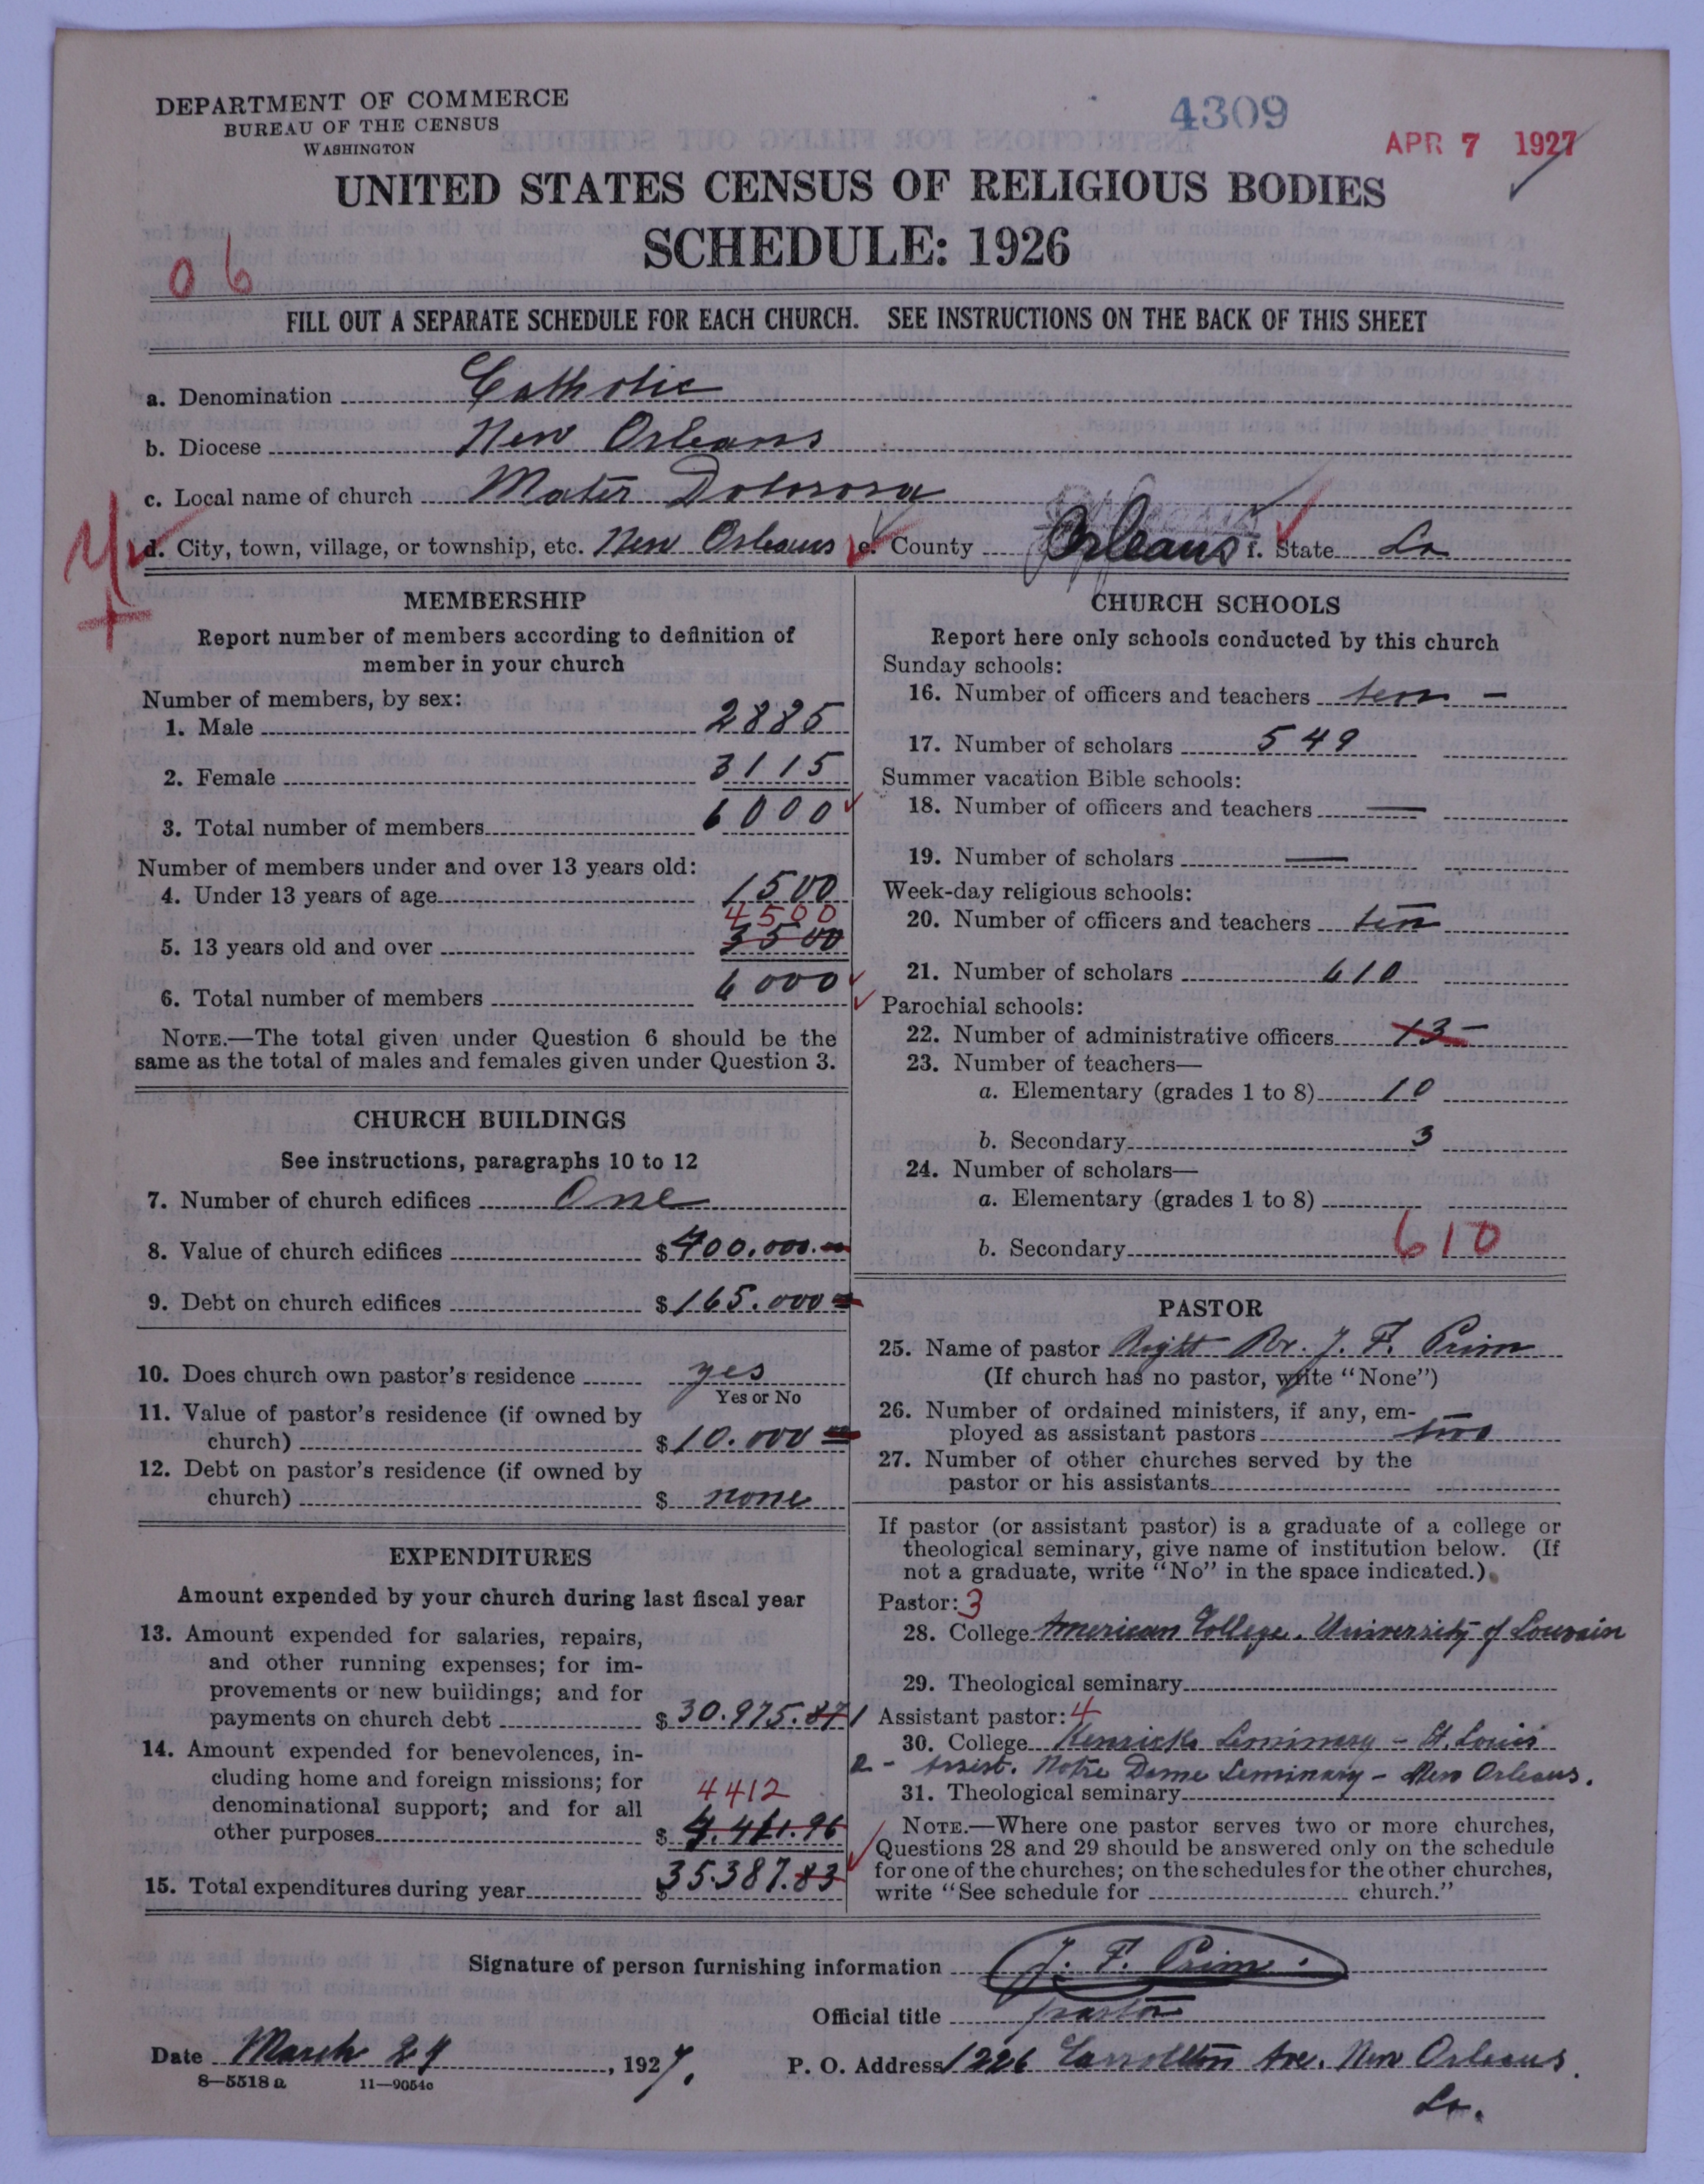 DEPARTMENT OF COMMERCE
BUREAU OF THE CENSUS
WASHINGTON
4309
APR 7 1927
UNITED STATES CENSUS OF RELIGIOUS BODIES
SCHEDULE: 1926
06
FILL OUT A SEPARATE SCHEDULE FOR EACH CHURCH. SEE INSTRUCTIONS ON THE BACK OF THIS SHEET
a. Denomination Catholic
b. Diocese New Orleans
c. Local name of church Mater Dolorosa
d. City, town, village, or township, etc. New Orleans e. County Orleans f. State La
MEMBERSHIP
Report number of members according to definition of
member in your church
Number of members, by sex:
1. Male 2885
2. Female 3115
3. Total number of members 6000
Number of members under and over 13 years old:
4. Under 13 years of age 1500
4500
5. 13 years old and over 3500
6. Total number of members 6000
NOTE.—The total given under Question 6 should be the
same as the total of males and females given under Question 3.
CHURCH BUILDINGS
See instructions, paragraphs 10 to 12
7. Number of church edifices One
8. Value of church edifices $400.000.
9. Debt on church edifices $165.000
10. Does church own pastor's residence yes
Yes or No
11. Value of pastor's residence (if owned by
church) $10.000
12. Debt on pastor's residence (if owned by
church) $ none
EXPENDITURES
Amount expended by your church during last fiscal year
13. Amount expended for salaries, repairs,
and other running expenses; for im-
provements or new buildings; and for
payments on church debt $30.975.87
14. Amount expended for benevolences, in-
cluding home and foreign missions; for
4412
denominational support; and for all
other purposes $ 4.411.96
15. Total expenditures during year $35.387.83
CHURCH SCHOOLS
Report here only schools conducted by this church
Sunday schools:
16. Number of officers and teachers ten –
17. Number of scholars 549
Summer vacation Bible schools:
18. Number of officers and teachers —
19. Number of scholars —
Week-day religious schools:
20. Number of officers and teachers ten
21. Number of scholars 610
Parochial schools:
22. Number of administrative officers 13 –
23. Number of teachers—
a. Elementary (grades 1 to 8) 10
b. Secondary 3
24. Number of scholars—
a. Elementary (grades 1 to 8)
b. Secondary 610
PASTOR
25. Name of pastor Right Rv. J. F. Prim
(If church has no pastor, write "None")
26. Number of ordained ministers, if any, em-
ployed as assistant pastors two
27. Number of other churches served by the
pastor or his assistants
If pastor (or assistant pastor) is a graduate of a college or
theological seminary, give name of institution below. (If
not a graduate, write "No" in the space indicated.)
Pastor: 3
28. College American College. University of Louvain
29. Theological seminary
Assistant pastor: 4
30. College Kenrick Seminary – St. Louis
2 – Assist. Notre Dame Seminary – New Orleans.
31. Theological seminary
NOTE.—Where one pastor serves two or more churches,
Questions 28 and 29 should be answered only on the schedule
for one of the churches; on the schedules for the other churches,
write "See schedule for church."
Signature of person furnishing information J. F. Prim.
Official title pastor
Date March 29, 1927. P. O. Address 1226 Carrollton Ave. New Orleans.
La.
8—5518a 11—9054c